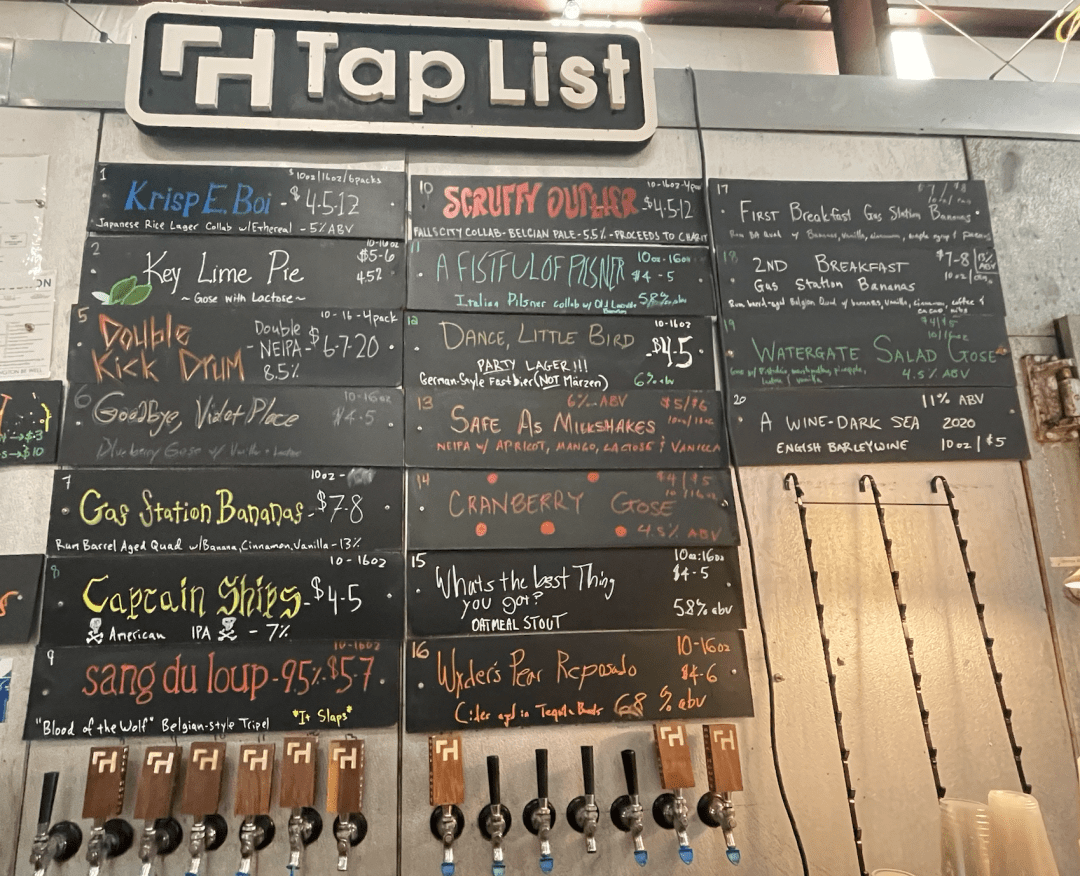 Tap List
1
Krisp E. Boi - $4.5.12
$10oz/16oz/6packs
Japanese Rice Lager Collab w/Ethereal - 5% ABV
2
Key Lime Pie
10-16oz
$5-6
4.52
~ Gose with Lactose ~
5
Double
Kick Drum
Double
NEIPA - $6-7-20
8.5%
10-16-4pack
6
Goodbye, Violet Place
10-16oz
$4-5
Blueberry Gose w/ Vanilla + Lactose
7
Gas Station Bananas - $7-8
10oz -
Rum Barrel Aged Quad w/Banana, Cinnamon, Vanilla - 13%
8
Captain Ships - $4-5
10-16oz
American IPA - 7%
9
sang du loup - 9.5% - $5-7
10-16oz
"Blood of the Wolf" Belgian-style Tripel *It Slaps*
10
SCRUFFY
10-16oz-4pk
$4.5.12
FALLS CITY COLLAB - BELGIAN PALE - 5.5% - PROCEEDS TO CHARITY
11
A FISTFUL OF PILSNER
10oz-16oz
$4-5
Italian Pilsner collab w/ Old Louisville
5.8% abv
12
DANCE, LITTLE BIRD
10-16oz
$4.5
PARTY LAGER!!!
German-Style Festbier (NOT Märzen) 6% abv
13
6% ABV
$5/$6
SAFE AS MILKSHAKES
NEIPA w/ APRICOT, MANGO, LACTOSE & VANILLA
14
$4/$5
CRANBERRY GOSE
4.5% ABV
15
10oz-16oz
$4-5
Whats the best Thing
you got?
OATMEAL STOUT
5.8% abv
16
10-16oz
Wyder's Pear Reposado
$4-6
Cider aged in Tequila Barrels 6.8% abv
17
$7/$8
FIRST Breakfast Gas Station Bananas
Rum BA Quad w/ Bananas, vanilla, cinnamon, maple syrup &
18
2ND BREAKFAST $7-8 13% ABV
Gas Station Bananas
Rum barrel-aged Belgian Quad w/ bananas, vanilla, cinnamon, coffee &
cacao nibs
19
$4/$5
WATERGATE SALAD GOSE
Gose w/ Pistachio, marshmallow, pineapple,
lactose & vanilla
4.5% ABV
20
11% ABV
A WINE-DARK SEA 2020
ENGLISH BARLEYWINE 10oz | $5